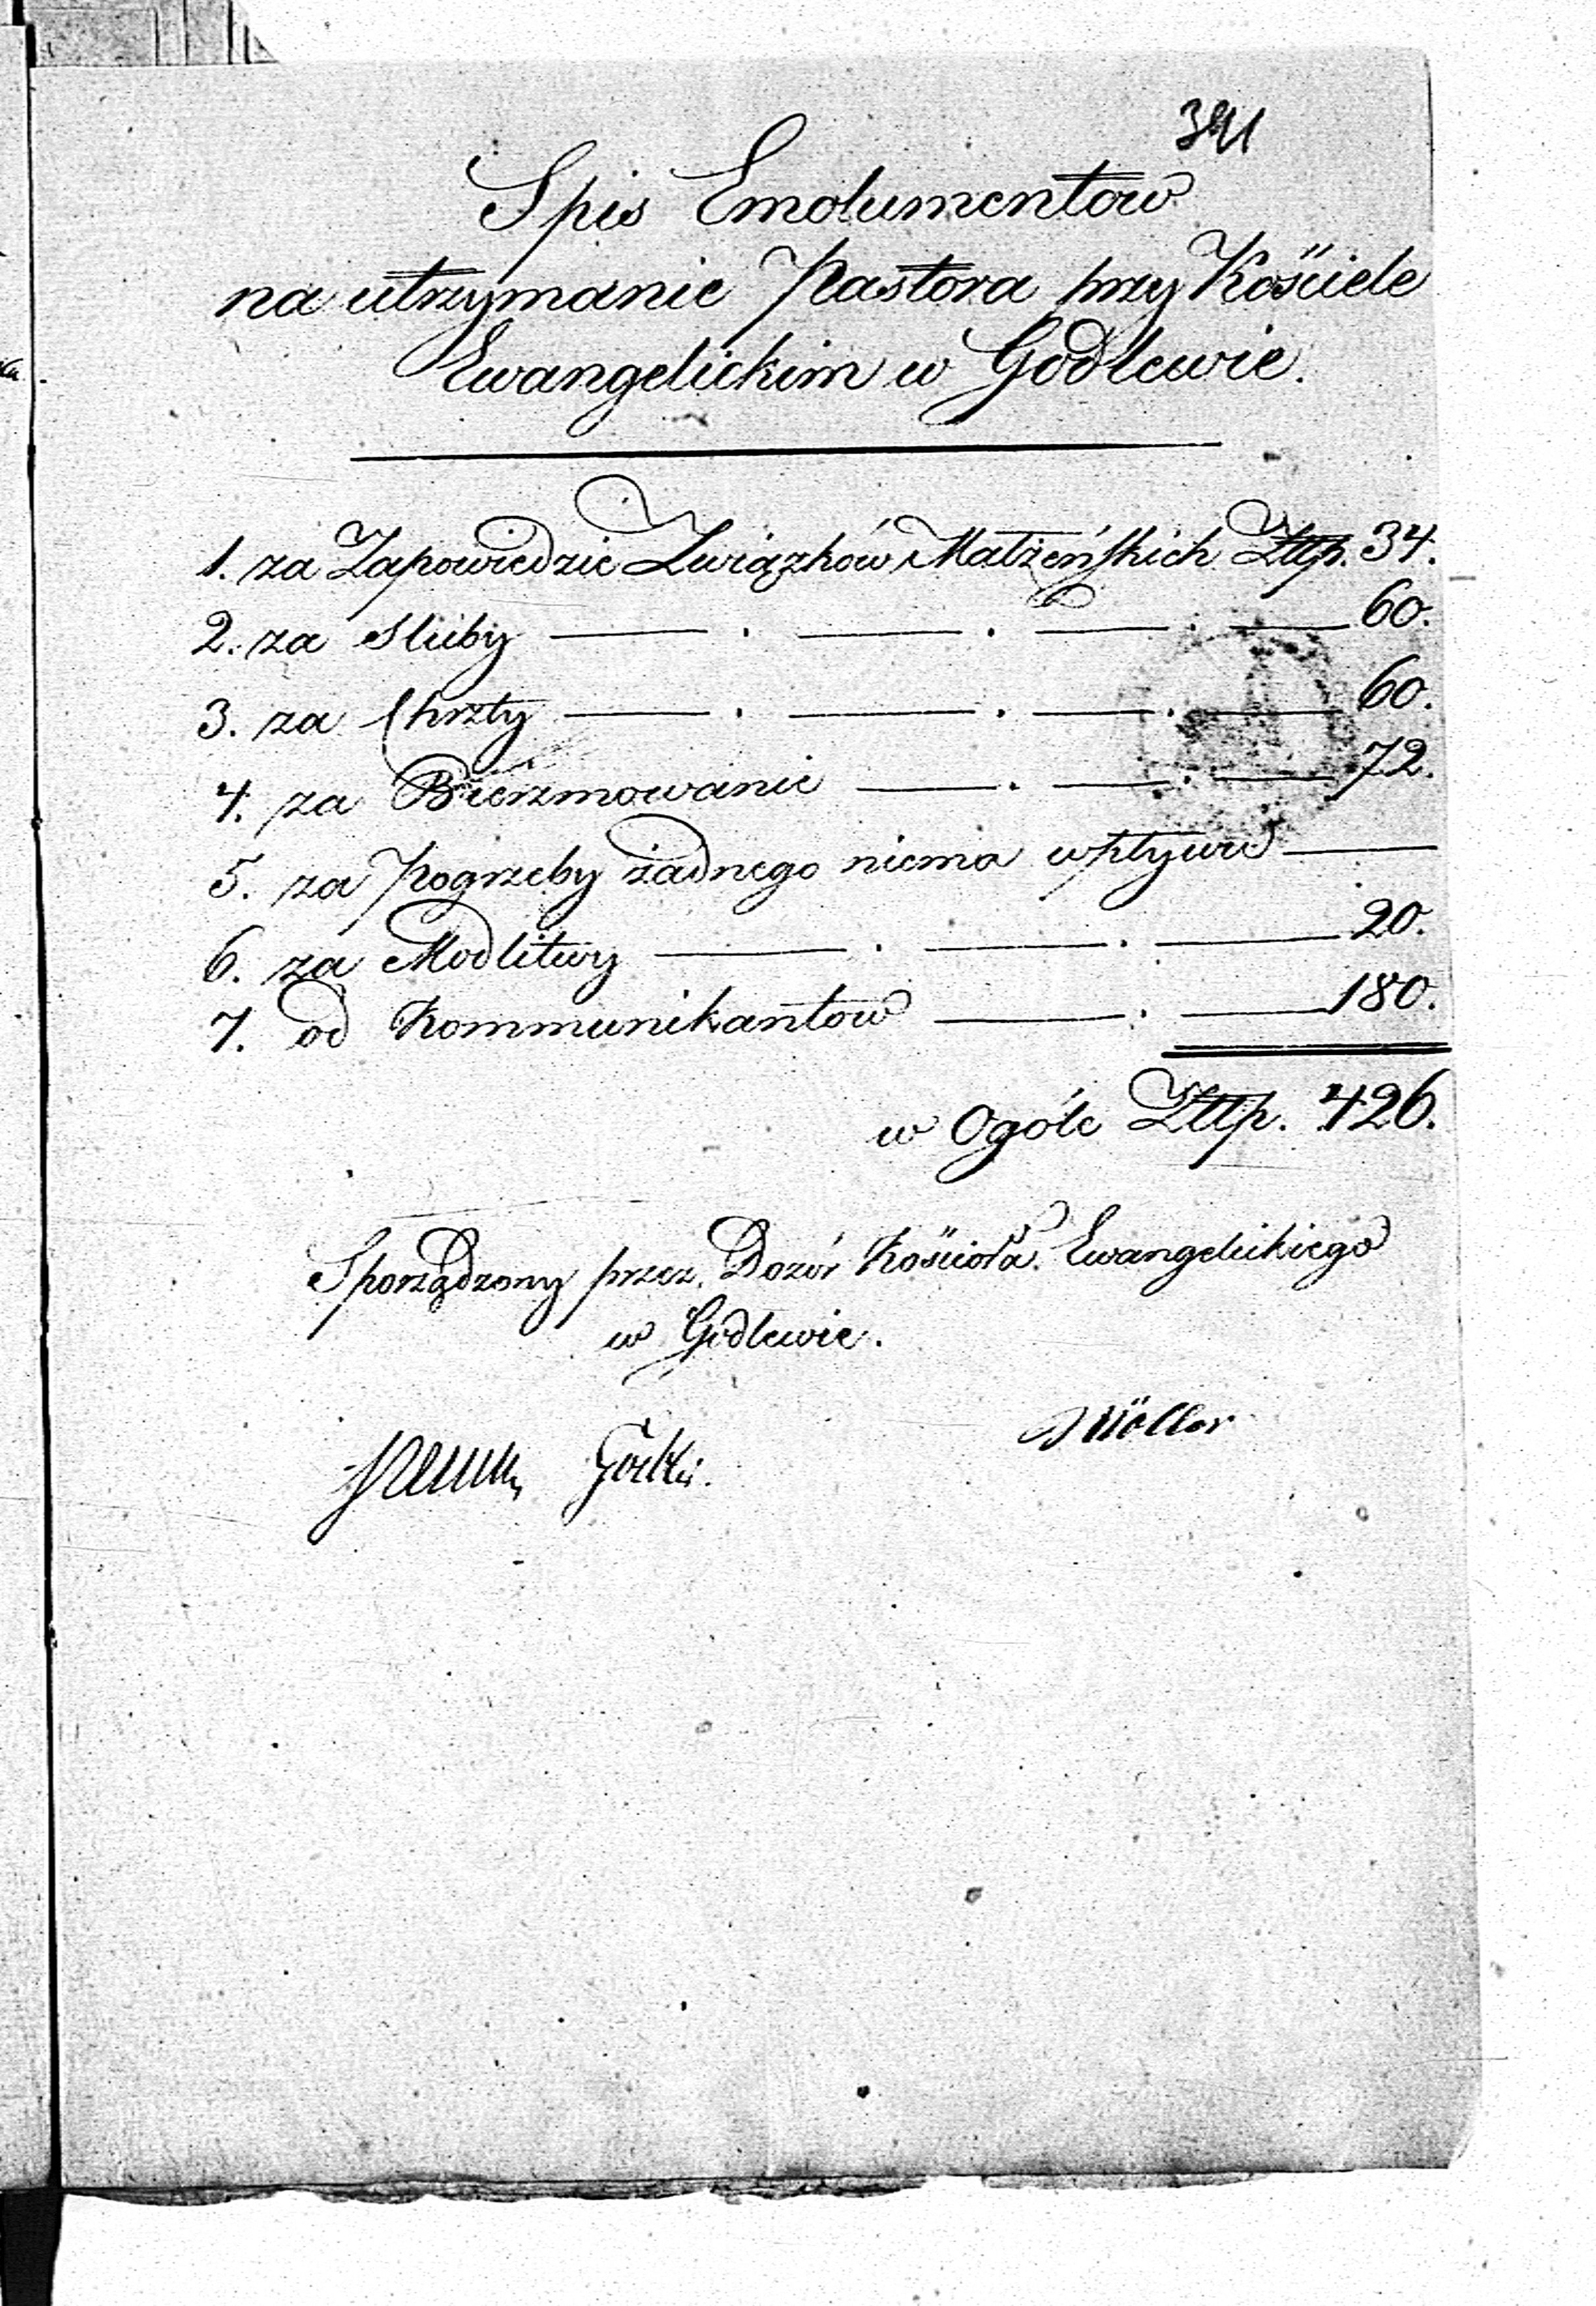 Spis Emolumentow
na utrzymanie Pastora przy Kościele
Ewangelickim w Godlewie.
1. za Zapowiedzie Związków Małżeńskich Złłp. 34.
2. za Sluby — . — . — . — 60.
3. za Chrzty — . — . — . — 60.
4. za Bierzmowanie — . — . — 72.
5. za Pogrzeby żadnego niema wpływu —
6. za Modlitwy — . — . — 20.
7. od Kommunikantow — . — 180.
w Ogóle Złłp. 426.
Sporządzony przez Dozór Kościoła Ewangelickiego
w Godlewie.
Möller